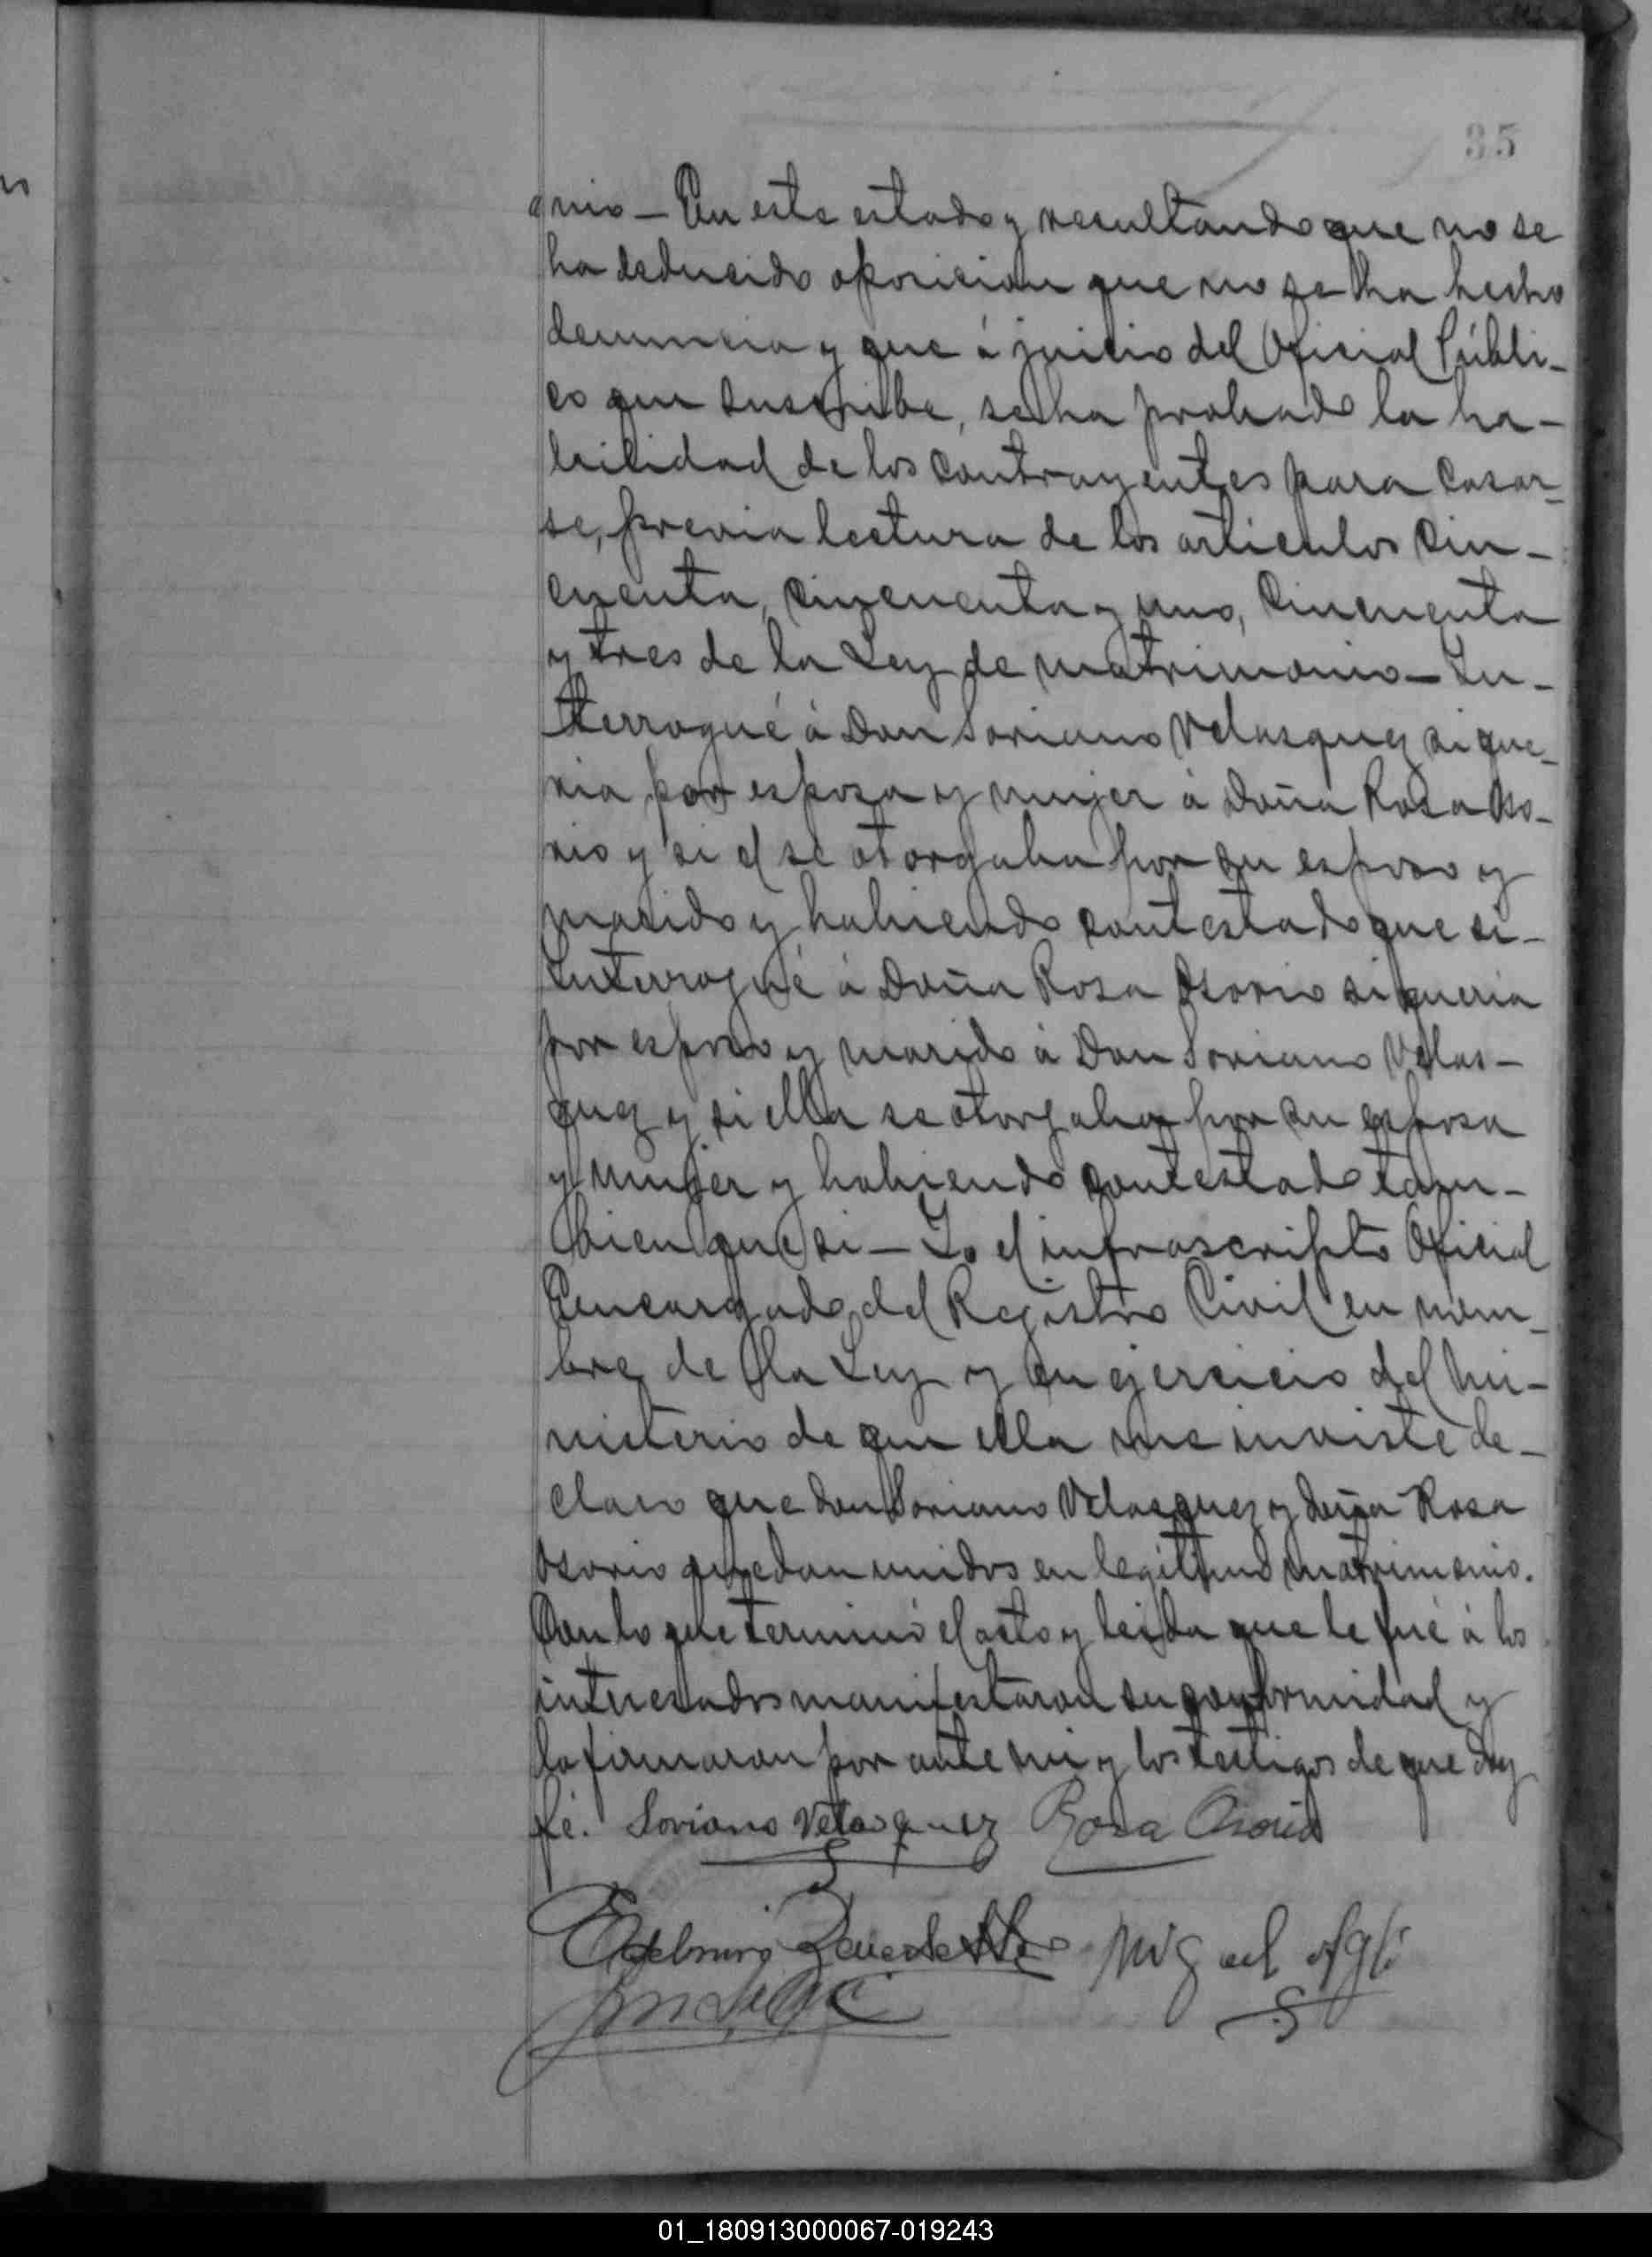 35
onio — En este estado y resultando que no se
ha deducido oposicion que no se ha hecho
denuncia y que á juicio del Oficial Públi-
co que suscribe, se ha probado la ha-
bilidad de los contrayentes para casar-
se, previa lectura de los articulos cin-
cuenta, cincuenta y uno, cincuenta
y tres de la Ley de matrimonio — In-
terrogué á Don Soriano Velasquez si que-
ria por esposa y mujer á Doña Rosa Oso-
rio y si el se otorgaba por su esposo y
marido y habiendo contestado que si -
Interrogué á Doña Rosa Osorio si queria
por esposo y marido á Don Soriano Velas-
quez y si ella se otorgaba por su esposa
y mujer y habiendo contestado tam-
bien que si — Yo el infrascripto Oficial
Encargado del Registro Civil en nom-
bre de la Ley y en ejercicio del Mi-
nisterio de que ella me inviste de-
claro que don Soriano Velasquez y doña Rosa
Osorio quedan unidos en legitimo matrimonio.
Con lo que terminó el acto y leida que le fué á los
interesados manifestaron su conformidad y
la firmaron por ante mi y los testigos de que doy
fé. Soriano Velasquez Rosa Osorio
Miguel
01_180913000067-019243